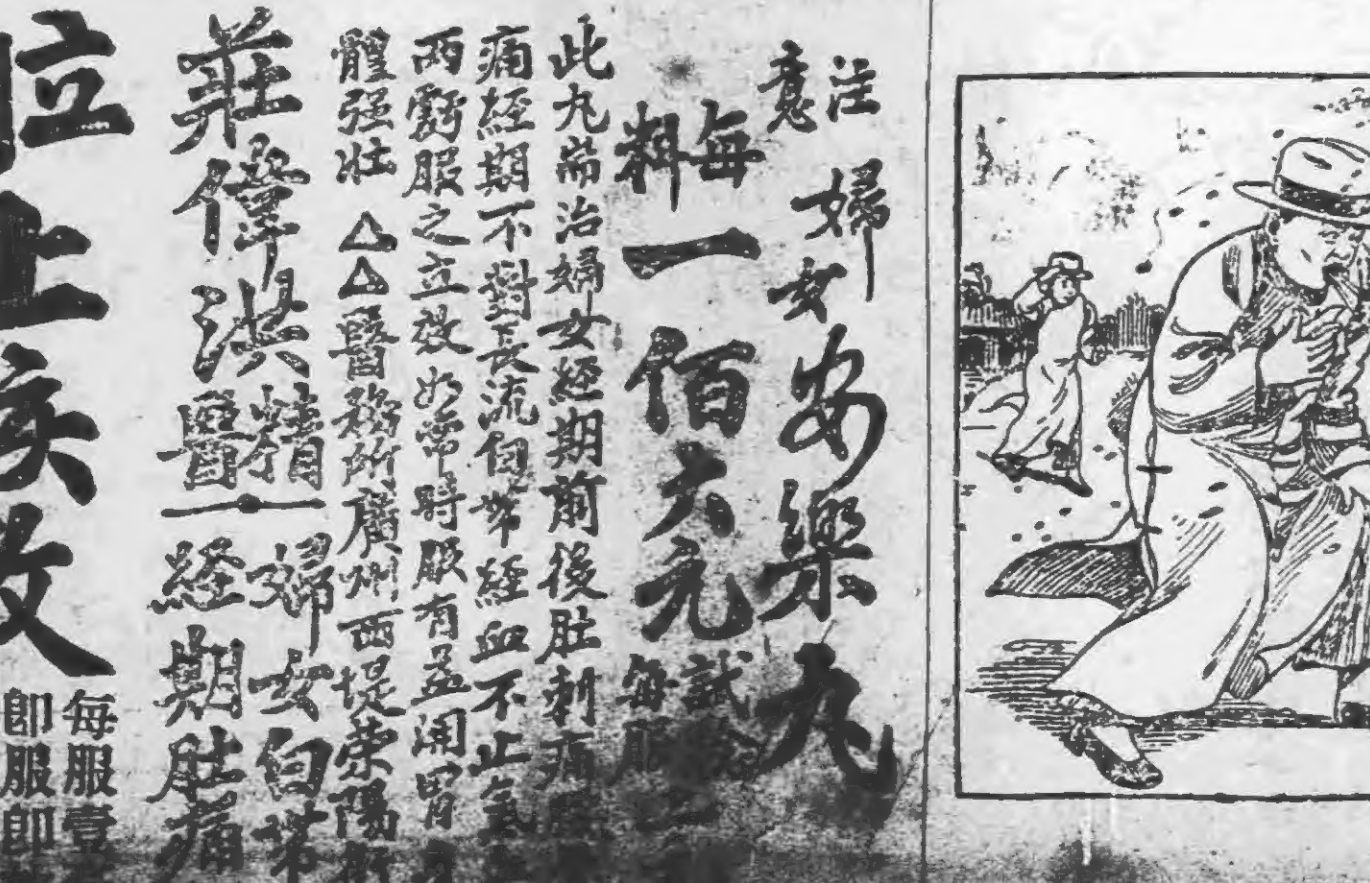 注意
婦女安樂丸
每料一佰六元
試
每服
此丸耑治婦女經期前後肚刺痛
痛經期不對長流白帶經血不止氣
两虧服之立效如常時服有益開胃
體强壯 △△醫務所廣州西堤荣陽街
莊偉洪精醫
婦女白帶
経期肚痛
拉上疾效
每服壹
即服即